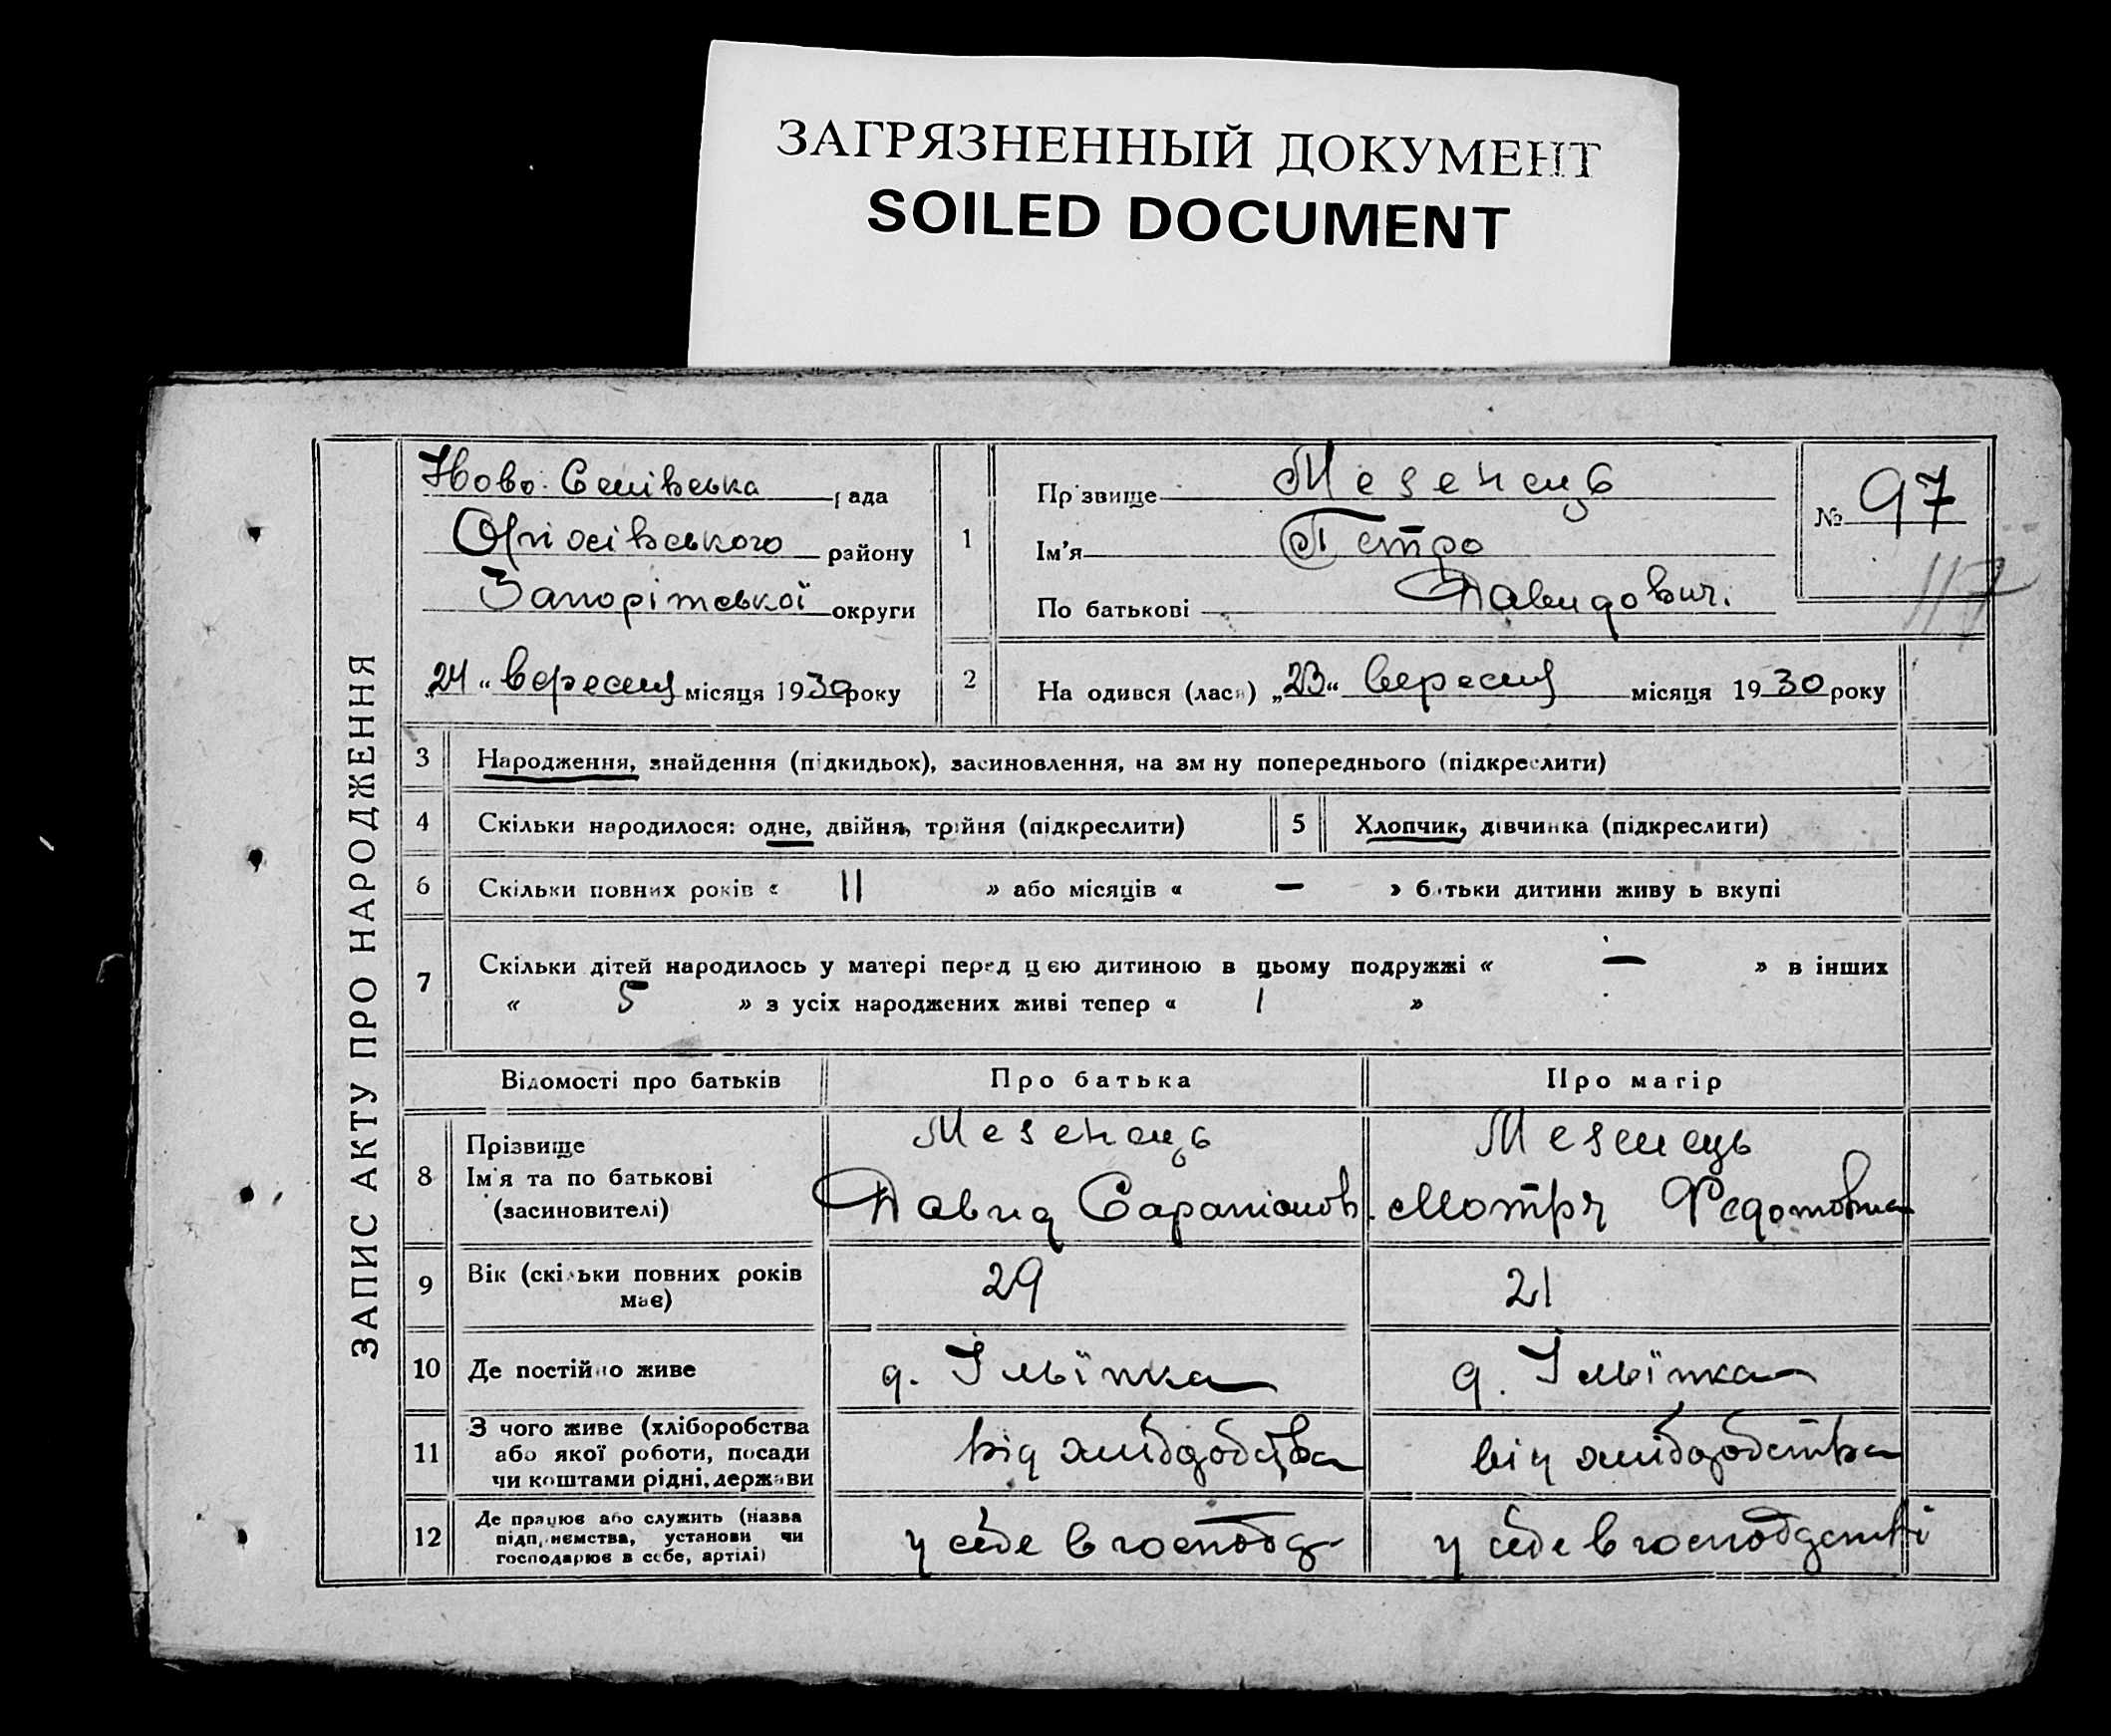 ЗАГРЯЗНЕННЫЙ ДОКУМЕНТ
SOILED DOCUMENT
ЗАПИС АКТУ ПРО НАРОДЖЕННЯ
рада
району
Запорітської округи
„24“ вересня місяця 1930 року
1
Прізвище Мезенець
Ім'я Петро
По батькові Давидович.
№ 97
117
2
На одився (лася) „23“ вересня місяця 1930 року
3 Народження, знайдення (підкидьок), засиновлення, на зм ну попереднього (підкреслити)
4 Скільки народилося: одне, двійня, трійня (підкреслити)
5 Хлопчик, дівчинка (підкреслити)
6 Скільки повних років « 11 » або місяців « — » батьки дитини живу ь вкупі
7 Скільки дітей народилось у матері перед цією дитиною в цьому подружжі « — » в інших
« 5 » з усіх народжених живі тепер « 1 »
Відомості про батьків Про батька Про матір
8 Прізвище
Ім'я та по батькові
(засновителі)
Мезенець
Давид Сарапіонов.
Мезенець
Мотря Федотовна
9 Вік (скільки повних років
має)
29 21
10 Де постійно живе
11 З чого живе (хліборобства
або якої роботи, посади
чи коштами рідні, держави
від хліборобства від хліборобства
12 Де працює або служить (назва
підприємства, установи чи
господарює в себе, артілі)
у себе в господ у себе в господстві